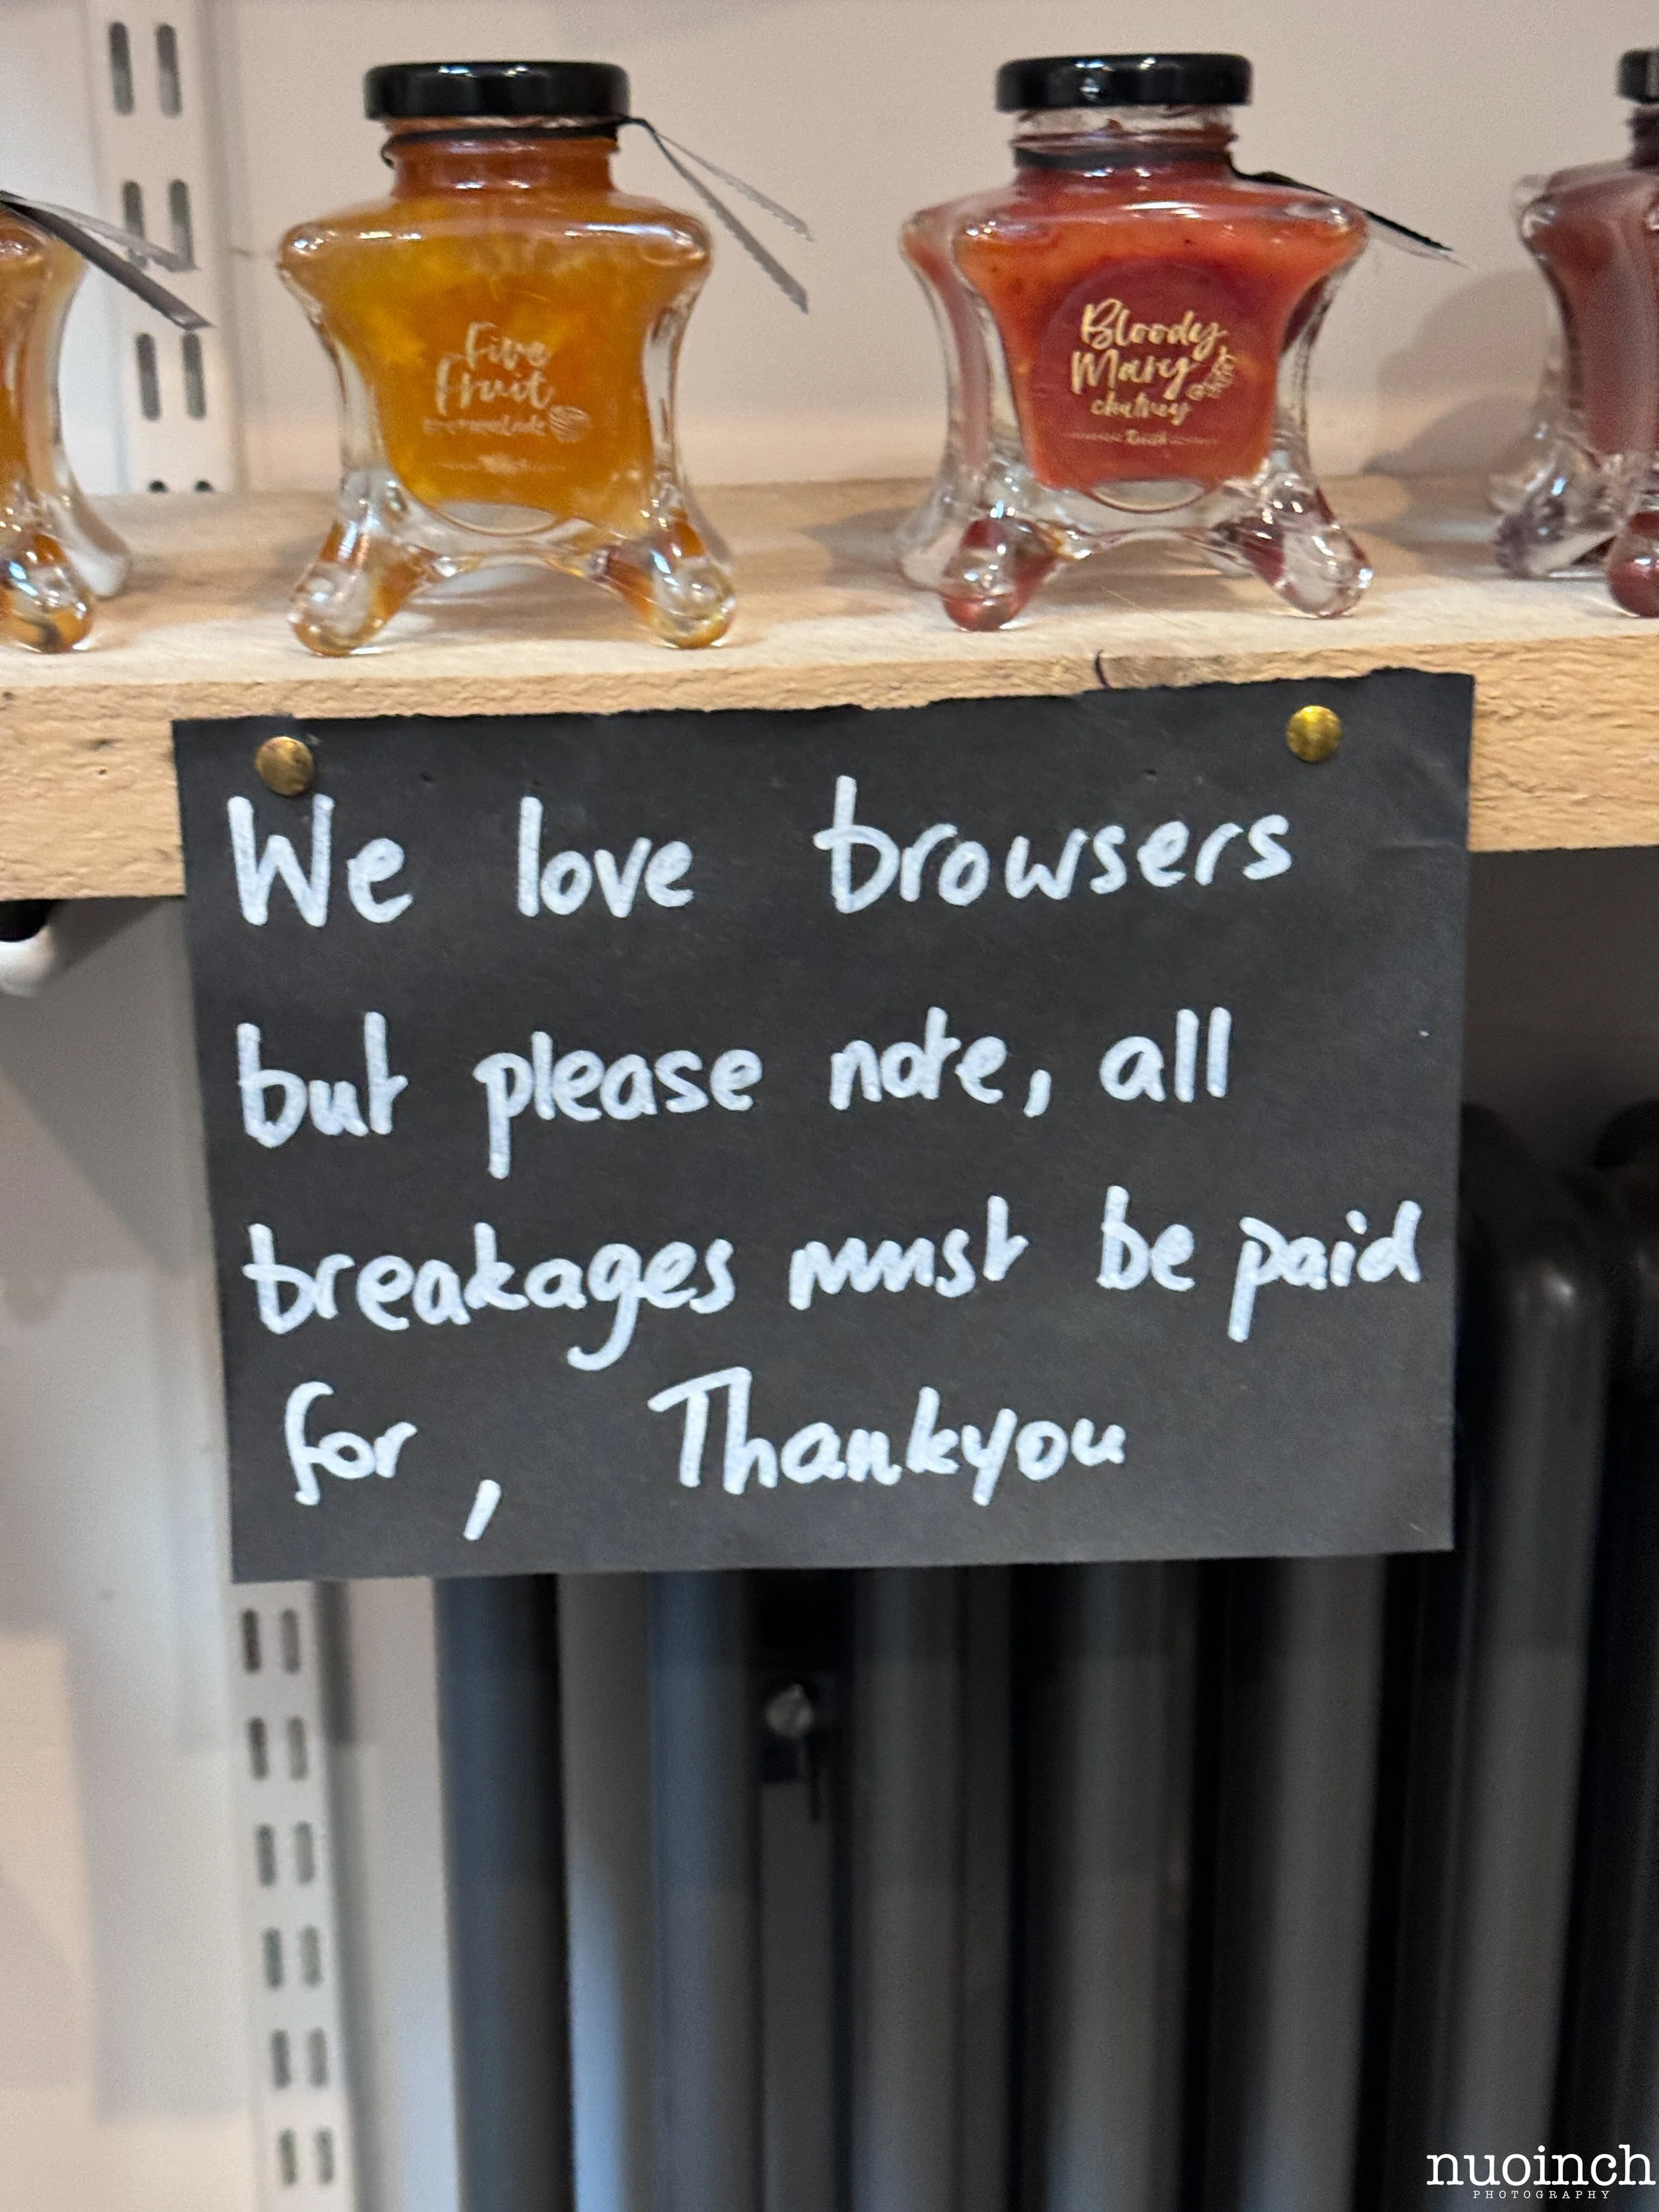 Five
Fruit
marmalade
Bloody
Mary
chutney
We love browsers
but please note, all
breakages must be paid
for, Thankyou
nuoinch
PHOTOGRAPHY